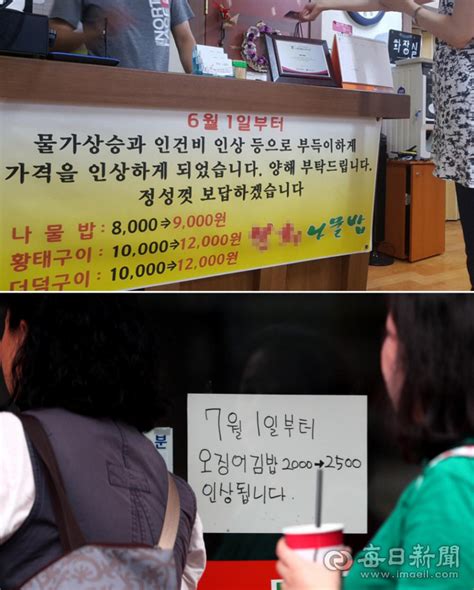 화장실
6월 1일부터
물가상승과 인건비 인상 등으로 부득이하게
가격을 인상하게 되었습니다. 양해 부탁드립니다.
정성껏 보답하겠습니다
나 물 밥 : 8,000➔9,000원
황태구이 : 10,000➔12,000원
더덕구이 : 10,000➔12,000원
나물밥
분
7월 1일부터
오징어김밥 2000→2500
인상됩니다.
每日新聞
www.imaeil.com